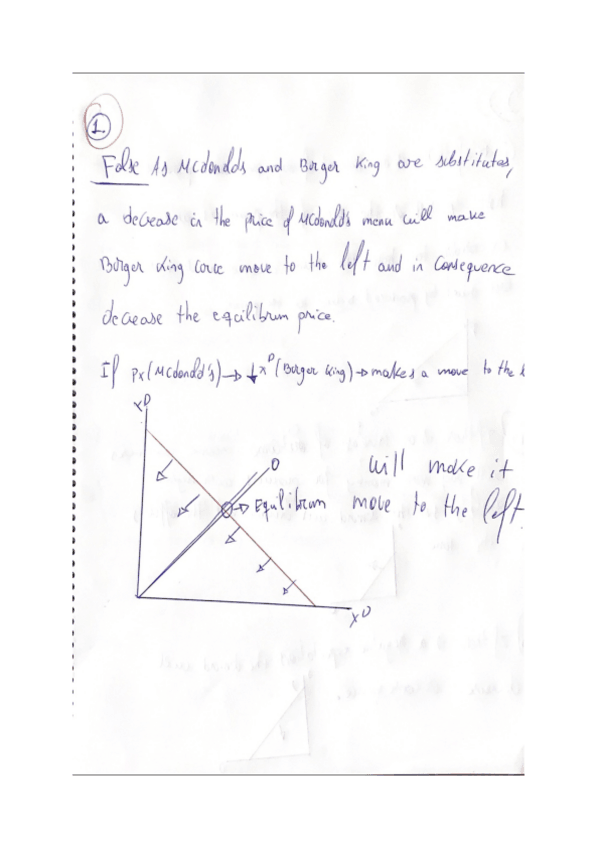 1.
False As McDonalds and Burger King are substitutes,
a decrease in the price of McDonalds menu will make
Burger King curve move to the left and in consequence
decrease the equilibrum price.
If Px(McDonald's) → ↓ x^D (Burger King) → makes a move to the
XP
O
will make it
→ Equilibrum move to the left.
X^D